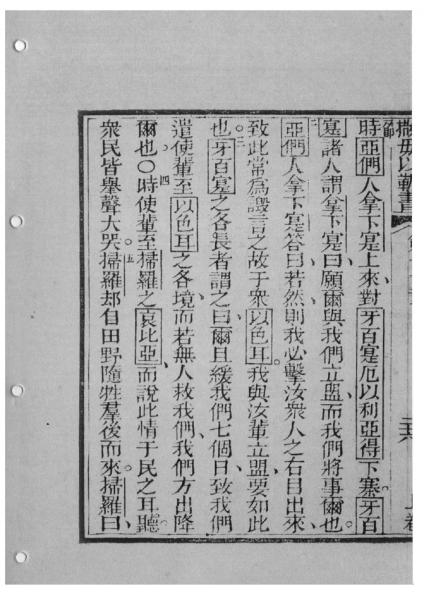 時亞們人拿下寔上來對牙百寔厄以利亞得下寨牙百
寔諸人謂拿下寔曰願爾與我們立盟而我們將事爾也
亞們人拿下寔答曰若然則我必擊汝衆人之右目出來
致此常為謗言之故于衆以色耳我與汝輩立盟要如此
也牙百寔之各長者謂之曰爾且緩我們七個日致我們
遣使輩至以色耳之各境而若無人救我們我們方出降
爾也○時使輩至掃羅之哀比亞而說此情于民之耳聽
衆民皆舉聲大哭掃羅却自田野隨牲羣後而來掃羅曰